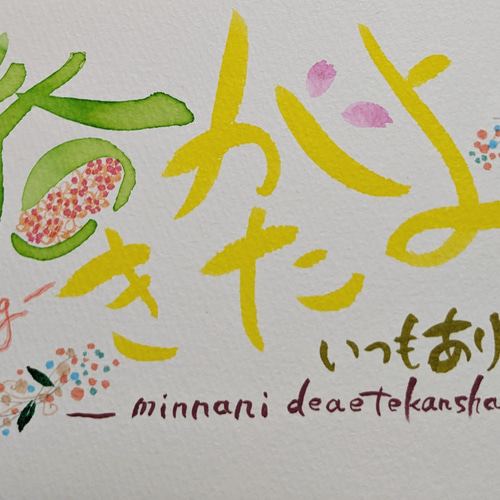 春がよ
きた
いつもあり
— minnani deaetekansha